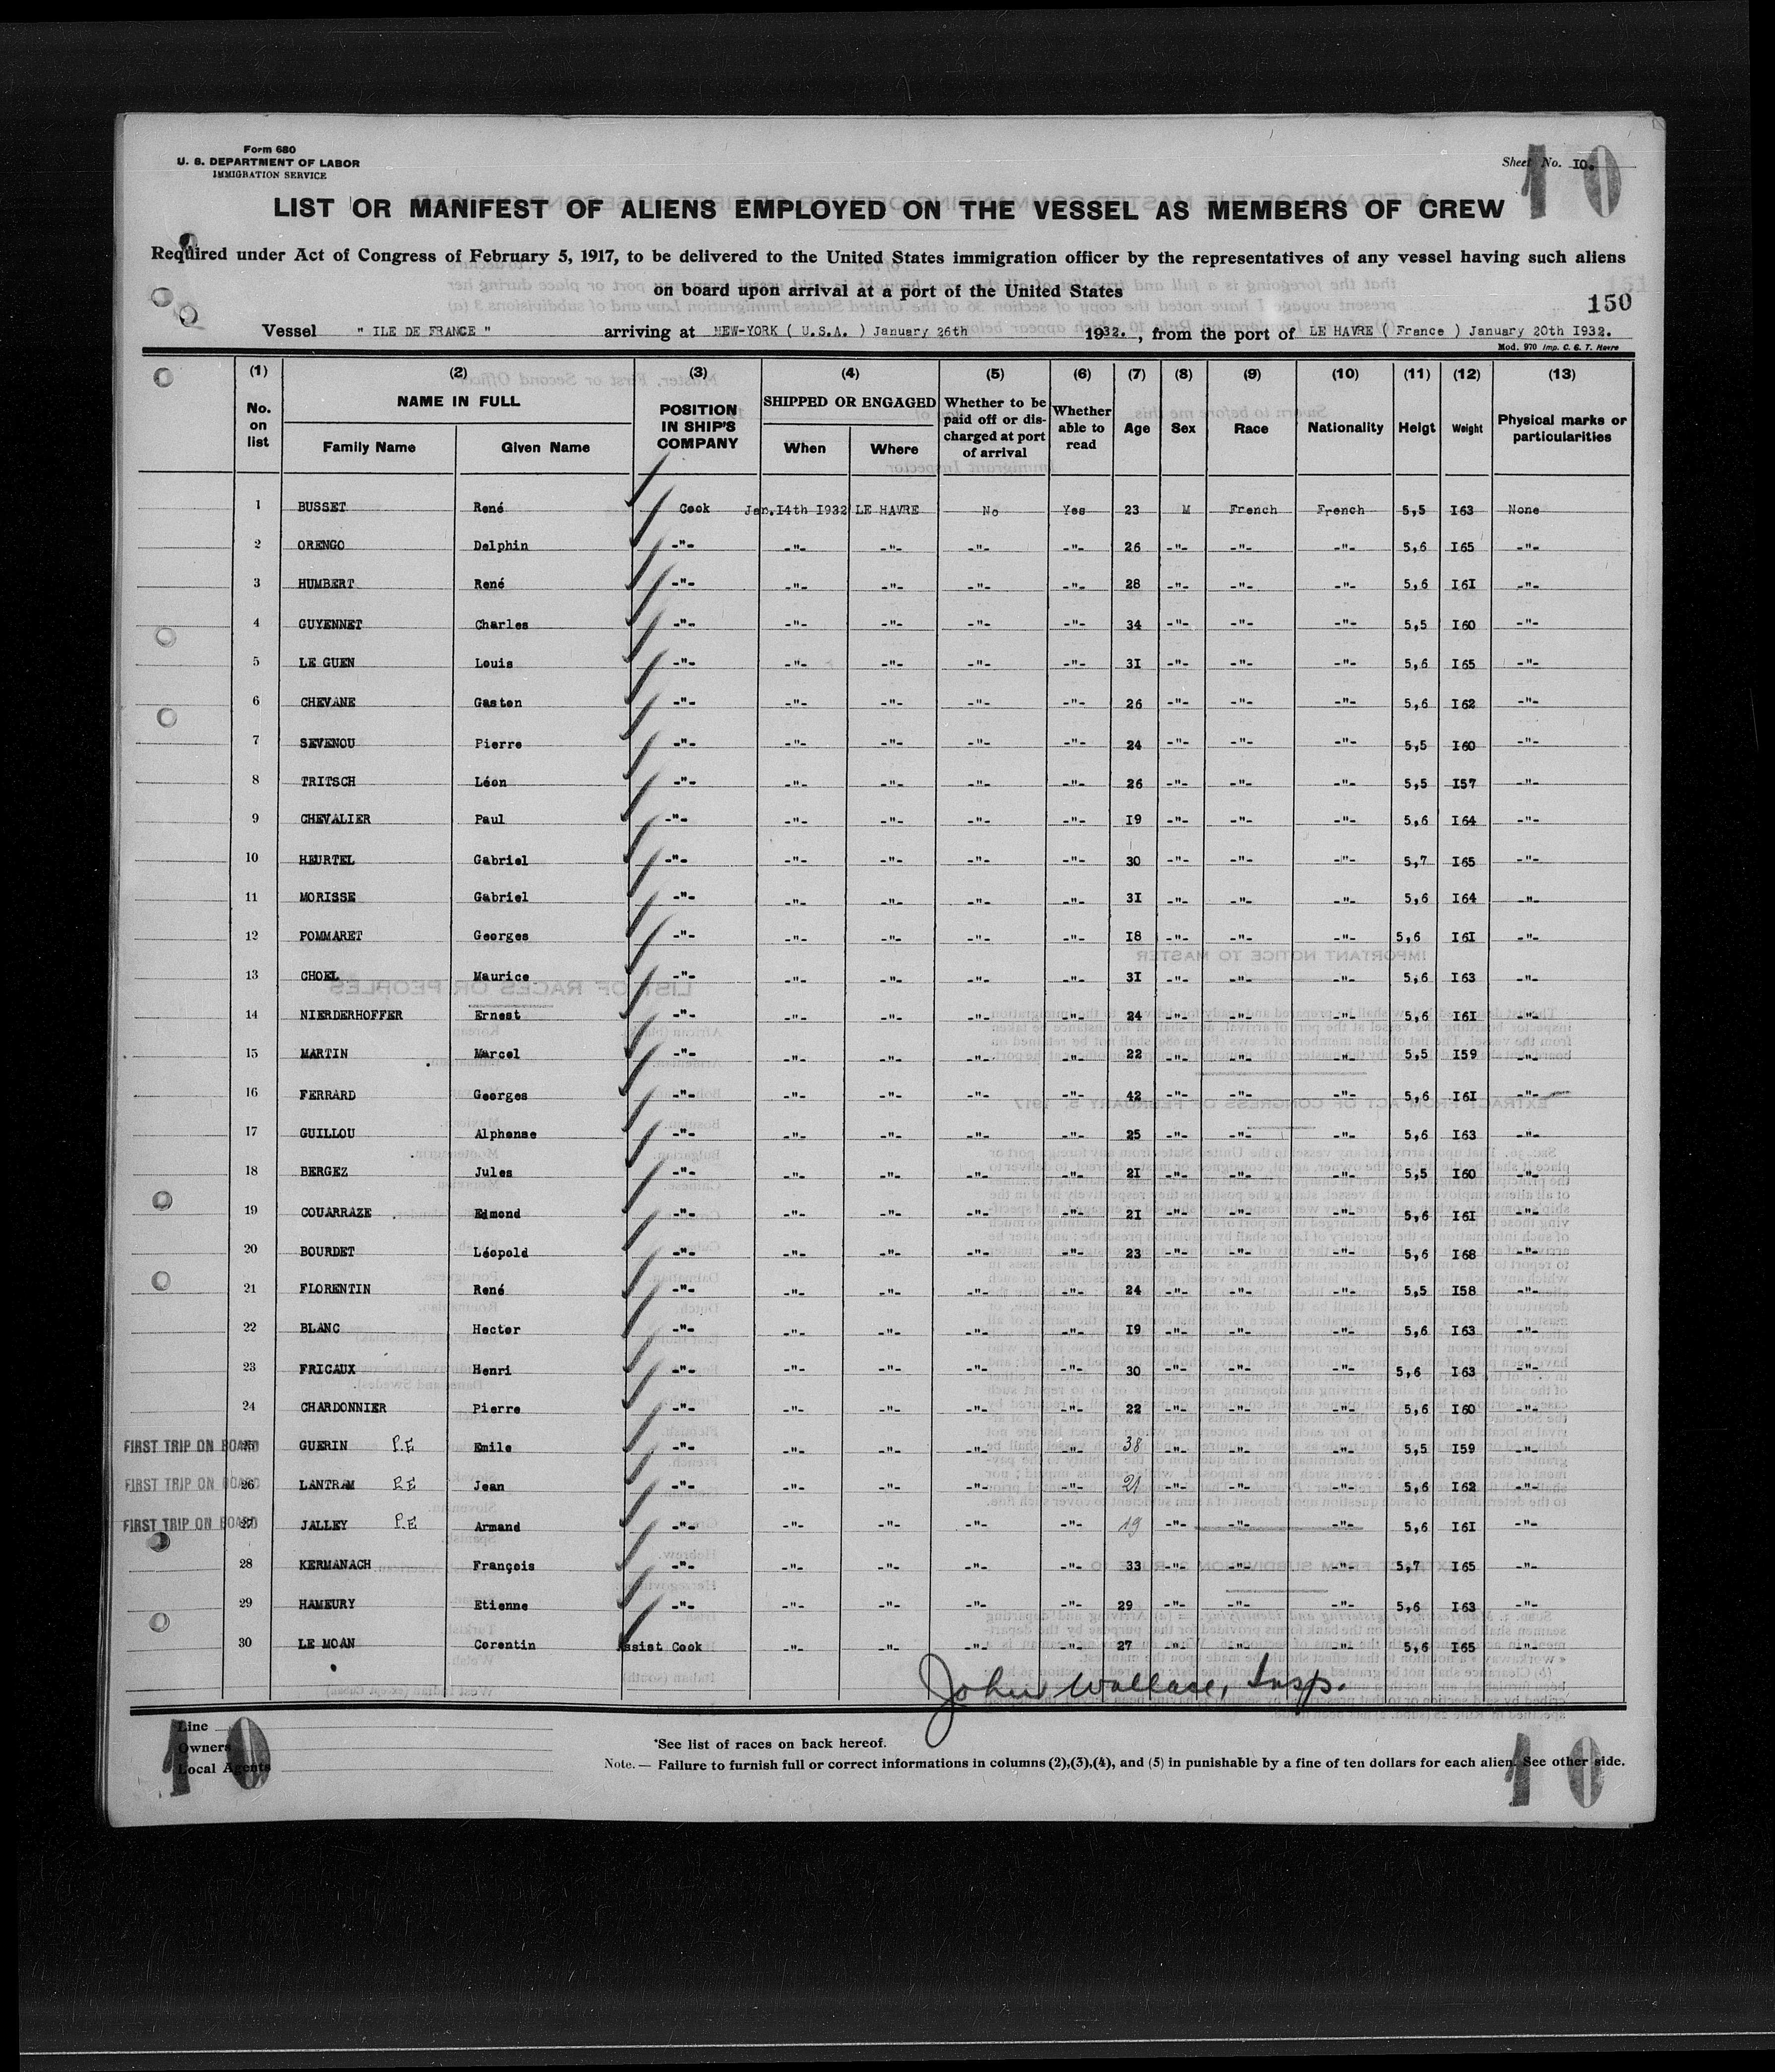 Form 680
U. S. DEPARTMENT OF LABOR
IMMIGRATION SERVICE
Sheet No. 10.
10
LIST OR MANIFEST OF ALIENS EMPLOYED ON THE VESSEL AS MEMBERS OF CREW
Required under Act of Congress of February 5, 1917, to be delivered to the United States immigration officer by the representatives of any vessel having such aliens
on board upon arrival at a port of the United States
150
Vessel " ILE DE FRANCE " arriving at NEW-YORK ( U.S.A. ) January 26th 1932. , from the port of LE HAVRE ( France ) January 20th 1932.
Mod. 970 Imp. C. G. T. Havre
(1) (2) (3) (4) (5) (6) (7) (8) (9) (10) (11) (12) (13)
No. on list NAME IN FULL Family Name Given Name POSITION IN SHIP'S COMPANY SHIPPED OR ENGAGED When Where Whether to be paid off or discharged at port of arrival Whether able to read Age Sex Race Nationality Heigt Weight Physical marks or particularities
1 BUSSET René Cook Jan.14th 1932 LE HAVRE No Yes 23 M French French 5,5 163 None
2 ORENGO Delphin -"- -"- -"- -"- -"- 26 -"- -"- -"- 5,6 165 -"-
3 HUMBERT René -"- -"- -"- -"- -"- 28 -"- -"- -"- 5,6 161 -"-
4 GUYENNET Charles -"- -"- -"- -"- -"- 34 -"- -"- -"- 5,5 160 -"-
5 LE GUEN Louis -"- -"- -"- -"- -"- 31 -"- -"- -"- 5,6 165 -"-
6 CHEVANE Gaston -"- -"- -"- -"- -"- 26 -"- -"- -"- 5,6 162 -"-
7 SEVENOU Pierre -"- -"- -"- -"- -"- 24 -"- -"- -"- 5,5 160 -"-
8 TRITSCH Léon -"- -"- -"- -"- -"- 26 -"- -"- -"- 5,5 157 -"-
9 CHEVALIER Paul -"- -"- -"- -"- -"- 19 -"- -"- -"- 5,6 164 -"-
10 HEURTEL Gabriel -"- -"- -"- -"- -"- 30 -"- -"- -"- 5,7 165 -"-
11 MORISSE Gabriel -"- -"- -"- -"- -"- 31 -"- -"- -"- 5,6 164 -"-
12 POMMARET Georges -"- -"- -"- -"- -"- 18 -"- -"- -"- 5,6 161 -"-
13 CHOEL Maurice -"- -"- -"- -"- -"- 31 -"- -"- -"- 5,6 163 -"-
14 NIERDERHOFFER Ernest -"- -"- -"- -"- -"- 24 -"- -"- -"- 5,6 161 -"-
15 MARTIN Marcel -"- -"- -"- -"- -"- 22 -"- -"- -"- 5,5 159 -"-
16 FERRARD Georges -"- -"- -"- -"- -"- 42 -"- -"- -"- 5,6 161 -"-
17 GUILLOU Alphonse -"- -"- -"- -"- -"- 25 -"- -"- -"- 5,6 163 -"-
18 BERGEZ Jules -"- -"- -"- -"- -"- 21 -"- -"- -"- 5,5 160 -"-
19 COUARRAZE Edmond -"- -"- -"- -"- -"- 21 -"- -"- -"- 5,6 161 -"-
20 BOURDET Léopold -"- -"- -"- -"- -"- 23 -"- -"- -"- 5,6 168 -"-
21 FLORENTIN René -"- -"- -"- -"- -"- 24 -"- -"- -"- 5,5 158 -"-
22 BLANC Hector -"- -"- -"- -"- -"- 19 -"- -"- -"- 5,6 163 -"-
23 FRICAUX Henri -"- -"- -"- -"- -"- 30 -"- -"- -"- 5,6 163 -"-
24 CHARDONNIER Pierre -"- -"- -"- -"- -"- 22 -"- -"- -"- 5,6 160 -"-
FIRST TRIP ON BOARD 25 GUERIN P.E Emile -"- -"- -"- -"- -"- 38 -"- -"- -"- 5,5 159 -"-
FIRST TRIP ON BOARD 26 LANTRAM P.E Jean -"- -"- -"- -"- -"- 21 -"- -"- -"- 5,6 162 -"-
FIRST TRIP ON BOARD 27 JALLEY P.E Armand -"- -"- -"- -"- -"- 19 -"- -"- -"- 5,6 161 -"-
28 KERMANACH François -"- -"- -"- -"- -"- 33 -"- -"- -"- 5,7 165 -"-
29 HAMEURY Etienne -"- -"- -"- -"- -"- 29 -"- -"- -"- 5,6 163 -"-
30 LE MOAN Corentin Assist Cook -"- -"- -"- -"- 27 -"- -"- -"- 5,6 165 -"-
John Wallace, Insp.
Line
Owners
Local Agents
10
*See list of races on back hereof.
Note.— Failure to furnish full or correct informations in columns (2),(3),(4), and (5) in punishable by a fine of ten dollars for each alien. See other side.
10